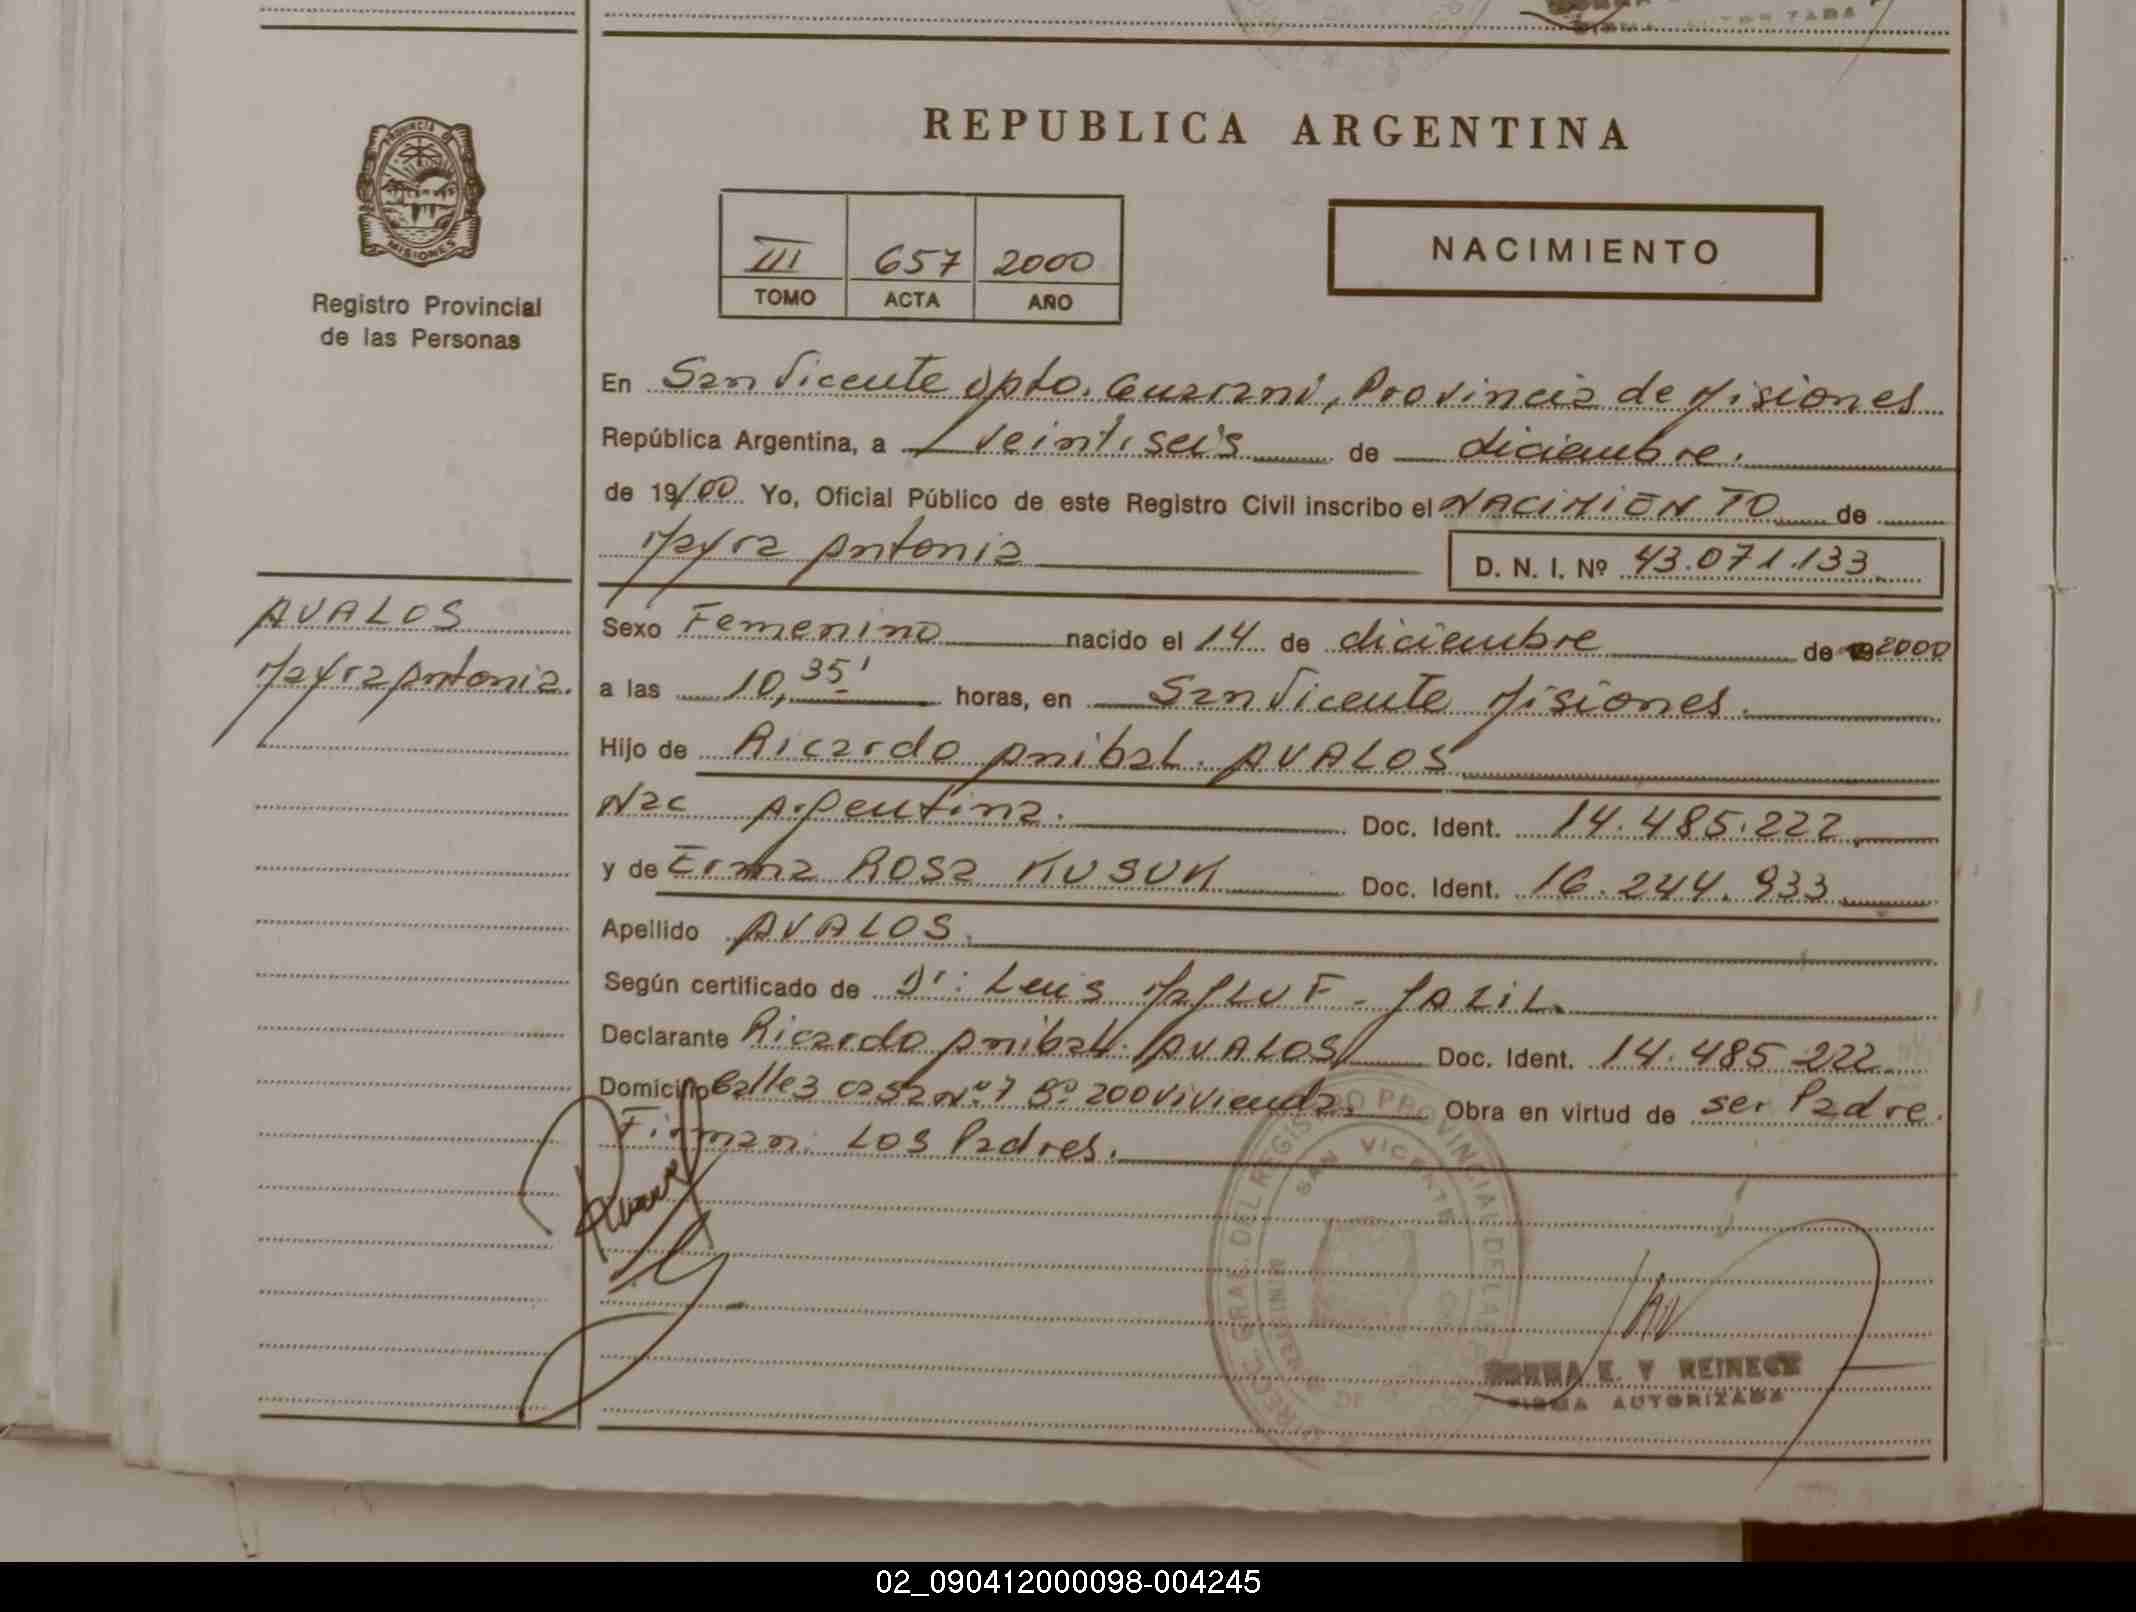 REPUBLICA ARGENTINA
PROVINCIA DE
MISIONES
Registro Provincial
de las Personas
III 657 2000
TOMO ACTA AÑO
NACIMIENTO
En San Vicente Dpto. Guaraní, Provincia de Misiones
República Argentina, a veintiseis de diciembre.
de 19/00 Yo, Oficial Público de este Registro Civil inscribo el NACIMIENTO de
Mayra Antonia
D. N. I. Nº 43.071.133
AVALOS
Mayra Antonia.
Sexo Femenino nacido el 14 de diciembre de 2000
a las 10,35' horas, en San Vicente Misiones.
Hijo de Ricardo Anibal. AVALOS
Nac Argentina. Doc. Ident. 14.485.222
y de Erma Rosa KUSUK Doc. Ident. 16.244.933
Apellido AVALOS.
Según certificado de Dr: Luis
Declarante Ricardo Anibal. AVALOS Doc. Ident. 14.485.222
Domicilio Calle 3 casa Nº 7 Bº 200 Vivienda. Obra en virtud de ser Padre.
Firman. Los Padres.
DIRECC. GRAL. DEL REGISTRO PROVINCIAL DE LAS
SAN VICENTE
E. V REINECK
FIRMA AUTORIZADA
02_090412000098-004245